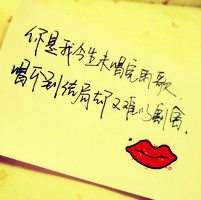 你是我今生未唱完的歌、
唱不到结局却又难以割舍.